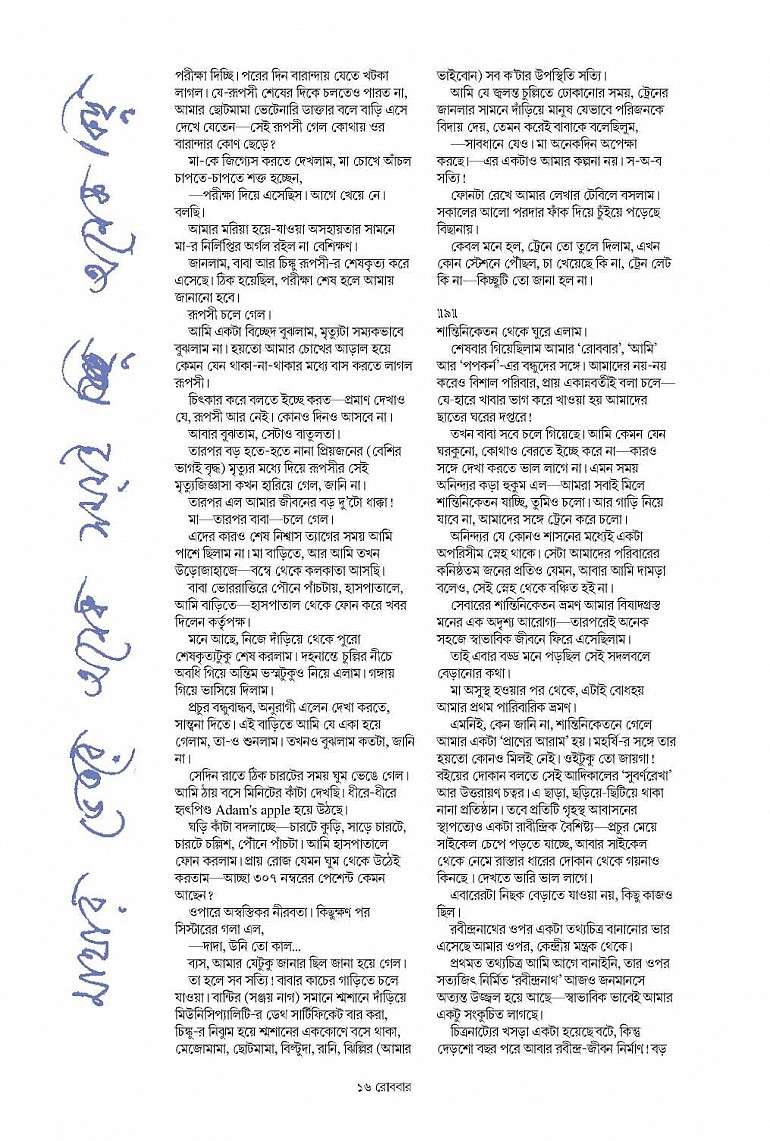 পরীক্ষা দিচ্ছি। পরের দিন বারান্দায় যেতে খটকা
লাগল। যে-রূপসী শেষের দিকে চলতেও পারত না,
আমার ছোটমামা ভেটেনারি ডাক্তার বলে বাড়ি এসে
দেখে যেতেন—সেই রূপসী গেল কোথায় ওর
বারান্দার কোণ ছেড়ে?
মা-কে জিগ্যেস করতে দেখলাম, মা চোখে আঁচল
চাপতে-চাপতে শক্ত হচ্ছেন,
—পরীক্ষা দিয়ে এসেছিস। আগে খেয়ে নে।
বলছি।
আমার মরিয়া হয়ে-যাওয়া অসহায়তার সামনে
মা-র নির্লিপ্তির অর্গল রইল না বেশিক্ষণ।
জানলাম, বাবা আর চিঙ্কু রূপসী-র শেষকৃত্য করে
এসেছে। ঠিক হয়েছিল, পরীক্ষা শেষ হলে আমায়
জানানো হবে।
রূপসী চলে গেল।
আমি একটা বিচ্ছেদ বুঝলাম, মৃত্যুটা সম্যকভাবে
বুঝলাম না। হয়তো আমার চোখের আড়াল হয়ে
কেমন যেন থাকা-না-থাকার মধ্যে বাস করতে লাগল
রূপসী।
চিৎকার করে বলতে ইচ্ছে করত—প্রমাণ দেখাও
যে, রূপসী আর নেই। কোনও দিনও আসবে না।
আবার বুঝতাম, সেটাও বাতুলতা।
তারপর বড় হতে-হতে নানা প্রিয়জনের (বেশির
ভাগই বৃদ্ধ) মৃত্যুর মধ্যে দিয়ে রূপসীর সেই
মৃত্যুজিজ্ঞাসা কখন হারিয়ে গেল, জানি না।
তারপর এল আমার জীবনের বড় দু'টো ধাক্কা!
মা—তারপর বাবা—চলে গেল।
এদের কারও শেষ নিশ্বাস ত্যাগের সময় আমি
পাশে ছিলাম না। মা বাড়িতে, আর আমি তখন
উড়োজাহাজে—বম্বে থেকে কলকাতা আসছি।
বাবা ভোররাত্তিরে পৌনে পাঁচটায়, হাসপাতালে,
আমি বাড়িতে—হাসপাতাল থেকে ফোন করে খবর
দিলেন কর্তৃপক্ষ।
মনে আছে, নিজে দাঁড়িয়ে থেকে পুরো
শেষকৃত্যটুকু শেষ করলাম। দহনান্তে চুল্লির নীচে
অবধি গিয়ে অন্তিম ভস্মটুকুও নিয়ে এলাম। গঙ্গায়
গিয়ে ভাসিয়ে দিলাম।
প্রচুর বন্ধুবান্ধব, অনুরাগী এলেন দেখা করতে,
সান্ত্বনা দিতে। এই বাড়িতে আমি যে একা হয়ে
গেলাম, তা-ও শুনলাম। তখনও বুঝলাম কতটা, জানি
না।
সেদিন রাতে ঠিক চারটের সময় ঘুম ভেঙে গেল।
আমি ঠায় বসে মিনিটের কাঁটা দেখছি। ধীরে-ধীরে
হৃৎপিণ্ড Adam's apple হয়ে উঠছে।
ঘড়ি কাঁটা বদলাচ্ছে—চারটে কুড়ি, সাড়ে চারটে,
চারটে চল্লিশ, পৌনে পাঁচটা। আমি হাসপাতালে
ফোন করলাম। প্রায় রোজ যেমন ঘুম থেকে উঠেই
করতাম—আচ্ছা ৩০৭ নম্বরের পেশেন্ট কেমন
আছেন?
ওপারে অস্বস্তিকর নীরবতা। কিছুক্ষণ পর
সিস্টারের গলা এল,
—দাদা, উনি তো কাল...
ব্যস, আমার যেটুকু জানার ছিল জানা হয়ে গেল।
তা হলে সব সত্যি! বাবার কাচের গাড়িতে চলে
যাওয়া। বান্টির (সঞ্জয় নাগ) সমানে শ্মশানে দাঁড়িয়ে
মিউনিসিপ্যালিটি-র ডেথ সার্টিফিকেট বার করা,
চিঙ্কু-র নিঝুম হয়ে শ্মশানের এককোণে বসে থাকা,
মেজোমামা, ছোটমামা, বিল্টুদা, রানি, ঝিল্লির (আমার
ভাইবোন) সব ক'টার উপস্থিতি সত্যি।
আমি যে জ্বলন্ত চুল্লিতে ঢোকানোর সময়, ট্রেনের
জানলার সামনে দাঁড়িয়ে মানুষ যেভাবে পরিজনকে
বিদায় দেয়, তেমন করেই বাবাকে বলেছিলুম,
—সাবধানে যেও। মা অনেকদিন অপেক্ষা
করছে।—এর একটাও আমার কল্পনা নয়। স-অ-ব
সত্যি!
ফোনটা রেখে আমার লেখার টেবিলে বসলাম।
সকালের আলো পরদার ফাঁক দিয়ে চুঁইয়ে পড়েছে
বিছানায়।
কেবল মনে হল, ট্রেনে তো তুলে দিলাম, এখন
কোন স্টেশনে পৌঁছল, চা খেয়েছে কি না, ট্রেন লেট
কি না—কিচ্ছুটি তো জানা হল না।
॥৯॥
শান্তিনিকেতন থেকে ঘুরে এলাম।
শেষবার গিয়েছিলাম আমার 'রোববার', 'আমি'
আর 'পপকর্ন'-এর বন্ধুদের সঙ্গে। আমাদের নয়-নয়
করেও বিশাল পরিবার, প্রায় একান্নবর্তীই বলা চলে—
যে-হারে খাবার ভাগ করে খাওয়া হয় আমাদের
ছাতের ঘরের দপ্তরে!
তখন বাবা সবে চলে গিয়েছে। আমি কেমন যেন
ঘরকুনো, কোথাও বেরতে ইচ্ছে করে না—কারও
সঙ্গে দেখা করতে ভাল লাগে না। এমন সময়
অনিন্দ্যর কড়া হুকুম এল—আমরা সবাই মিলে
শান্তিনিকেতন যাচ্ছি, তুমিও চলো। আর গাড়ি নিয়ে
যাবে না, আমাদের সঙ্গে ট্রেনে করে চলো।
অনিন্দ্যর যে কোনও শাসনের মধ্যেই একটা
অপরিসীম স্নেহ থাকে। সেটা আমাদের পরিবারের
কনিষ্ঠতম জনের প্রতিও যেমন, আবার আমি দামড়া
বলেও, সেই স্নেহ থেকে বঞ্চিত হই না।
সেবারের শান্তিনিকেতন ভ্রমণ আমার বিষাদগ্রস্ত
মনের এক অদৃশ্য আরোগ্য—তারপরেই অনেক
সহজে স্বাভাবিক জীবনে ফিরে এসেছিলাম।
তাই এবার বড্ড মনে পড়ছিল সেই সদলবলে
বেড়ানোর কথা।
মা অসুস্থ হওয়ার পর থেকে, এটাই বোধহয়
আমার প্রথম পারিবারিক ভ্রমণ।
এমনিই, কেন জানি না, শান্তিনিকেতনে গেলে
আমার একটা 'প্রাণের আরাম' হয়। মহর্ষি-র সঙ্গে তার
হয়তো কোনও মিলই নেই। ওইটুকু তো জায়গা!
বইয়ের দোকান বলতে সেই আদিকালের 'সুবর্ণরেখা'
আর উত্তরায়ণ চত্বর। এ ছাড়া, ছড়িয়ে-ছিটিয়ে থাকা
নানা প্রতিষ্ঠান। তবে প্রতিটি গৃহস্থ আবাসনের
স্থাপত্যেও একটা রাবীন্দ্রিক বৈশিষ্ট্য—প্রচুর মেয়ে
সাইকেল চেপে পড়তে যাচ্ছে, আবার সাইকেল
থেকে নেমে রাস্তার ধারের দোকান থেকে গয়নাও
কিনছে। দেখতে ভারি ভাল লাগে।
এবারেরটা নিছক বেড়াতে যাওয়া নয়, কিছু কাজও
ছিল।
রবীন্দ্রনাথের ওপর একটা তথ্যচিত্র বানানোর ভার
এসেছে আমার ওপর, কেন্দ্রীয় মন্ত্রক থেকে।
প্রথমত তথ্যচিত্র আমি আগে বানাইনি, তার ওপর
সত্যজিৎ নির্মিত 'রবীন্দ্রনাথ' আজও জনমানসে
অত্যন্ত উজ্জ্বল হয়ে আছে—স্বাভাবিক ভাবেই আমার
একটু সংকুচিত লাগছে।
চিত্রনাট্যের খসড়া একটা হয়েছে বটে, কিন্তু
দেড়শো বছর পরে আবার রবীন্দ্র-জীবন নির্মাণ! বড়
১৬ রোববার